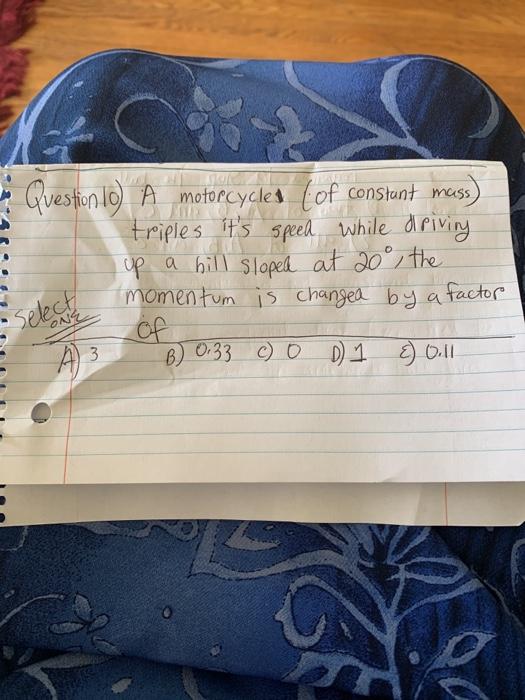 Question 10) A motorcycle (of constant mass)
triples it's speed while driving
up a hill sloped at 20°, the
momentum is changed by a factor
of
Select
ONE
A) 3 B) 0.33 C) 0 D) 1 E) 0.11